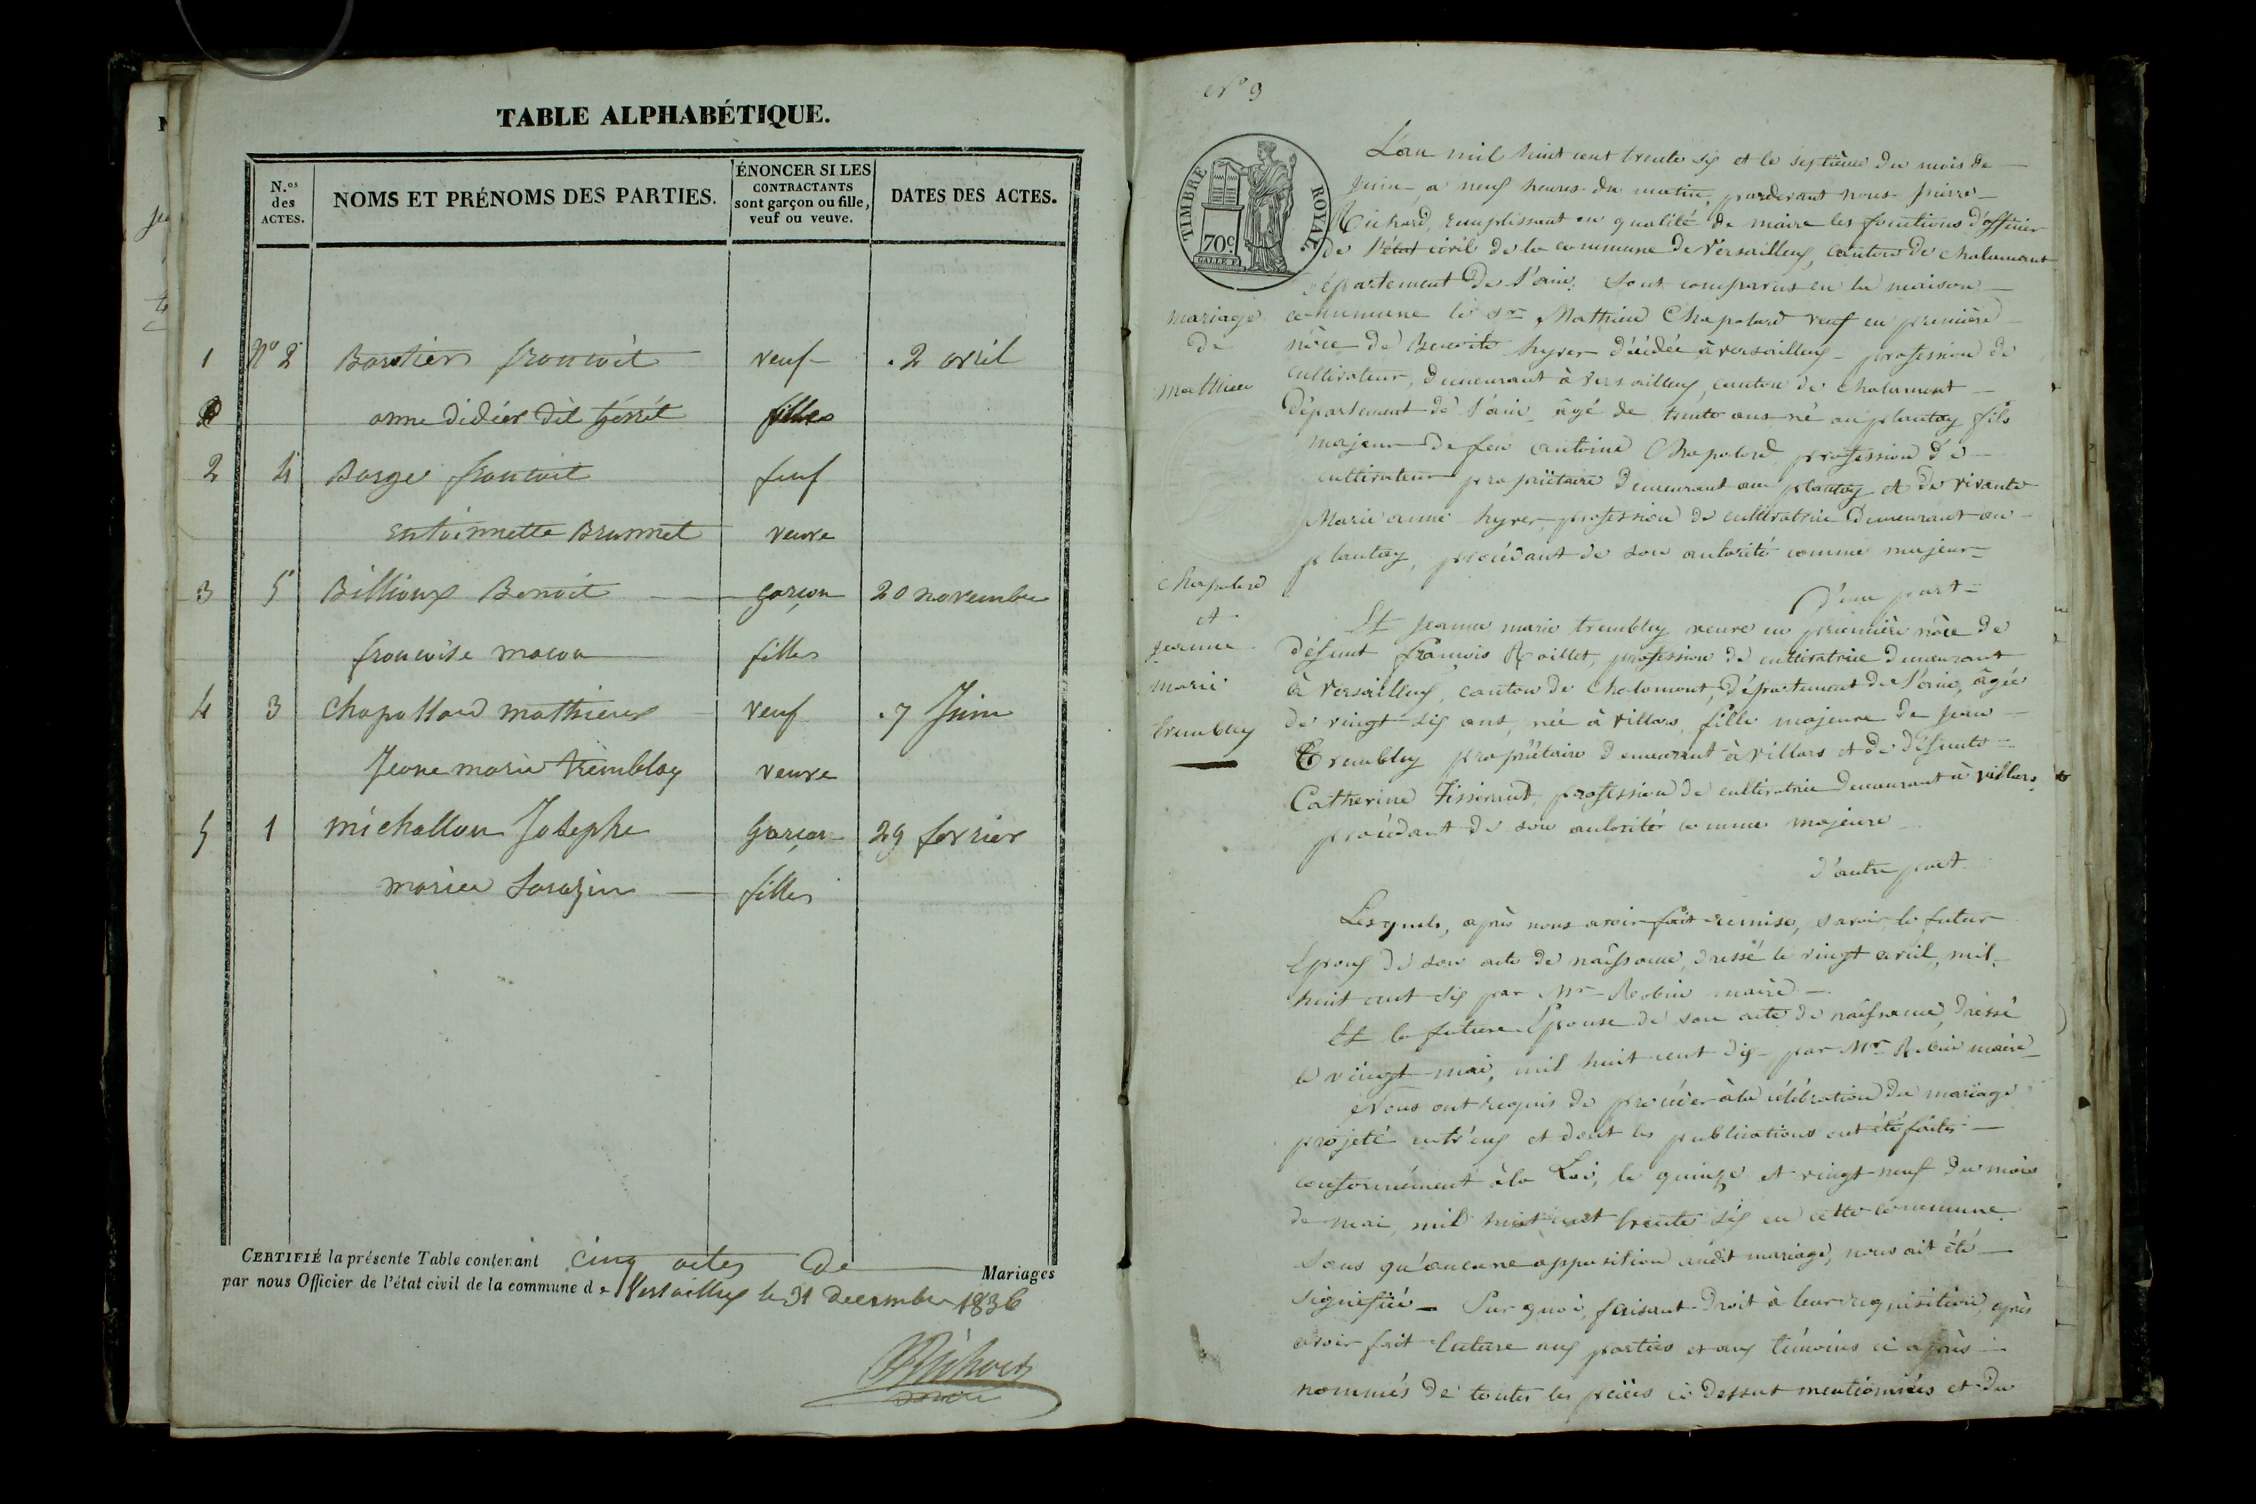 TABLE ALPHABÉTIQUE.
N.os des ACTES.
NOMS ET PRÉNOMS DES PARTIES.
ÉNONCER SI LES CONTRACTANTS sont garçon ou fille, veuf ou veuve.
DATES DES ACTES.
1 No 2 françoit veuf . 2 avril
anne didier dit filles
2 4 Borge françoit feuf
entoinnette Brunnet veuve
3 5 Billioux Benoit garçon 20 novembre
francoise macon filles
4 3 Chapollard mathieux veuf . 7 Juin
Jeane marie tremblay veuve
5 1 michallon Josephe garçon 29 fevrier
mariee Sarazin filles
CERTIFIÉ la présente Table contenant cinq actes de Mariages
par nous Officier de l'état civil de la commune de Versailleux le 31 decembre 1836
PRichard
maire
No 9
TIMBRE ROYAL
70c
mariage
de
mathieu
Chapolard
et
jeanne
marie
tremblay
L'an mil huit cent trente six et le septième du mois de
juin à neuf heures du matin, pardevant nous pierre
Richard, remplissant en qualité de maire les fonctions d'officier
de l'état civil de la commune de Versailleux, canton de chalamont
département de l'ain. Sont comparus en la maison
commune le sr Mathieu Chapolard veuf en première
nôce de Benoite hyver décédée à versailleux profession de
cultivateur, demeurant à versailleux, canton de chalamont
Département de l'ain âgé de trente ans né au plantay fils
majeur de feu antoine Chapolard profession de
cultivateur propriétaire demeurant au plantay et de vivante
Marie anne hyver, profession de cultivatrice demeurant au
plantay, procédant de son autorité comme majeur
D'une part
Et jeanne marie tremblay veuve en première nôce de
défunt françois Roillet, profession de cultivatrice demeurant
à Versailleux, canton de Chalamont, département de l'ain, âgée
de vingt six ans, née à villars, fille majeure de jean
Tremblay propriétaire demeurant à villars et de défunte
Catherine profession de cultivatrice demeurant à villars
procédant de son autorité comme majeure
D'autre part
Lesquels, après nous avoir fait remise, savoir le futur
Epoux de son acte de naissance, dressé le vingt avril, mil
huit cent six par Mr Robin maire
Et la future Epouse de son acte de naissance, dressé
le vingt mai, mil huit cent dix par Mr Robin maire
Nous ont requis de procéder à la célébration du mariage
projeté entr'eux et dont les publications ont été faites
conformément à la Loi, le quinze et vingt-neuf du mois
de mai mil huit cent trente six en cette commune
sans qu'aucune opposition audit mariage, nous ait été
signifiée. Sur quoi, faisant droit à leur réquisition, après
avoir fait lecture aux parties et aux témoins ci après
nommés de toutes les pièces ci dessus mentionnées et du